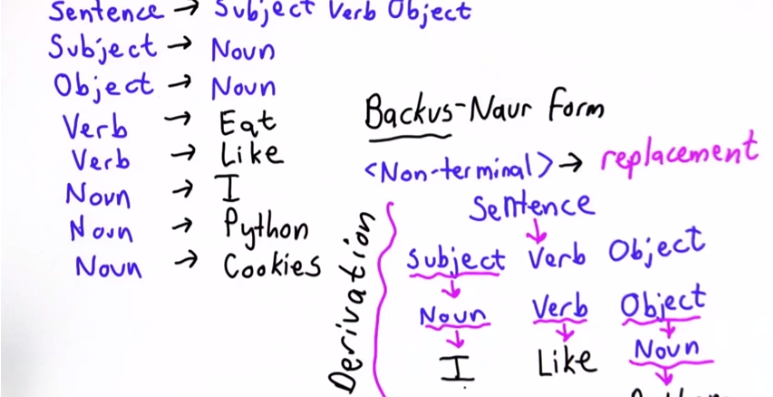 Sentence → Subject Verb Object
Subject → Noun
Object → Noun
Verb → Eat
Verb → Like
Noun → I
Noun → Python
Noun → Cookies
Backus-Naur Form
<Non-terminal> → replacement
Derivation
Sentence
Subject Verb Object
Noun Verb Object
I Like Noun